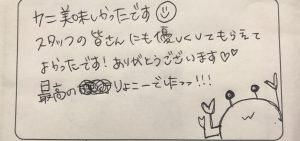 カニ美味しかったです
スタッフの皆さんにも優しくしてもらえて
よかったです！ありがとうございます♡♡
最高の りょこーでしたッッ!!!